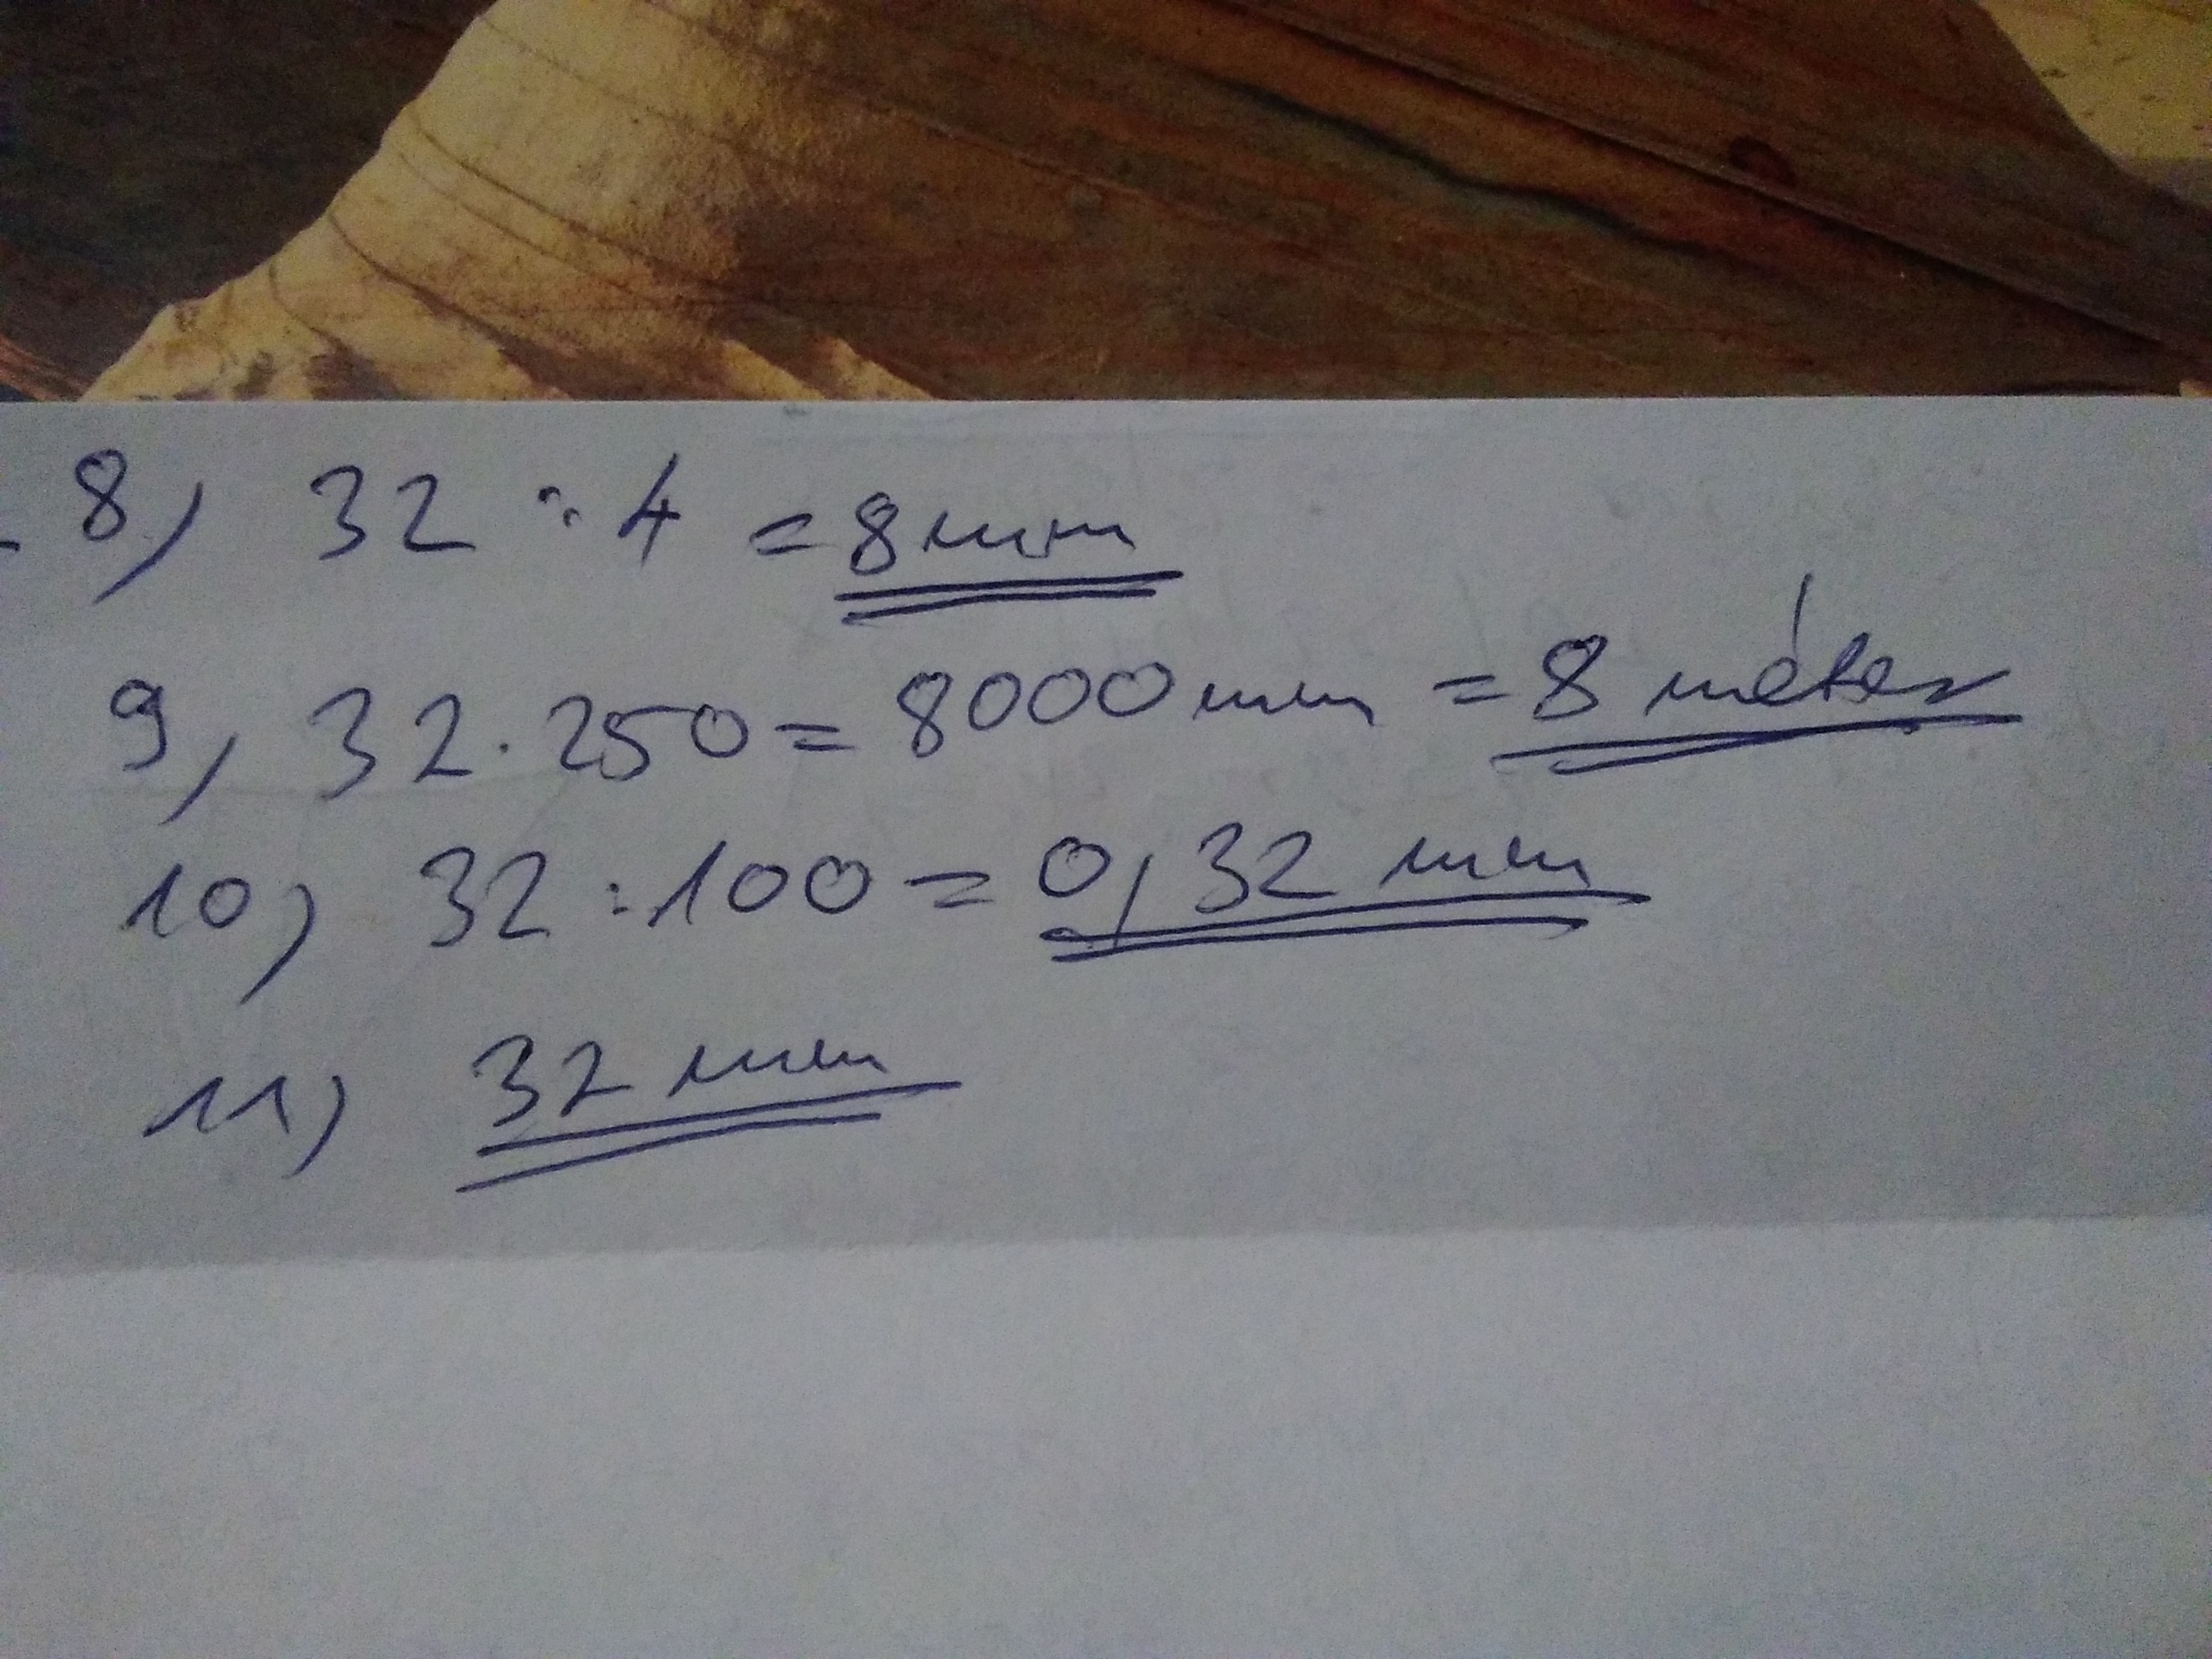 8) 32 : 4 = 8 mm
9) 32 · 250 = 8000 mm = 8 méter
10) 32 : 100 = 0,32 mm
11) 32 mm